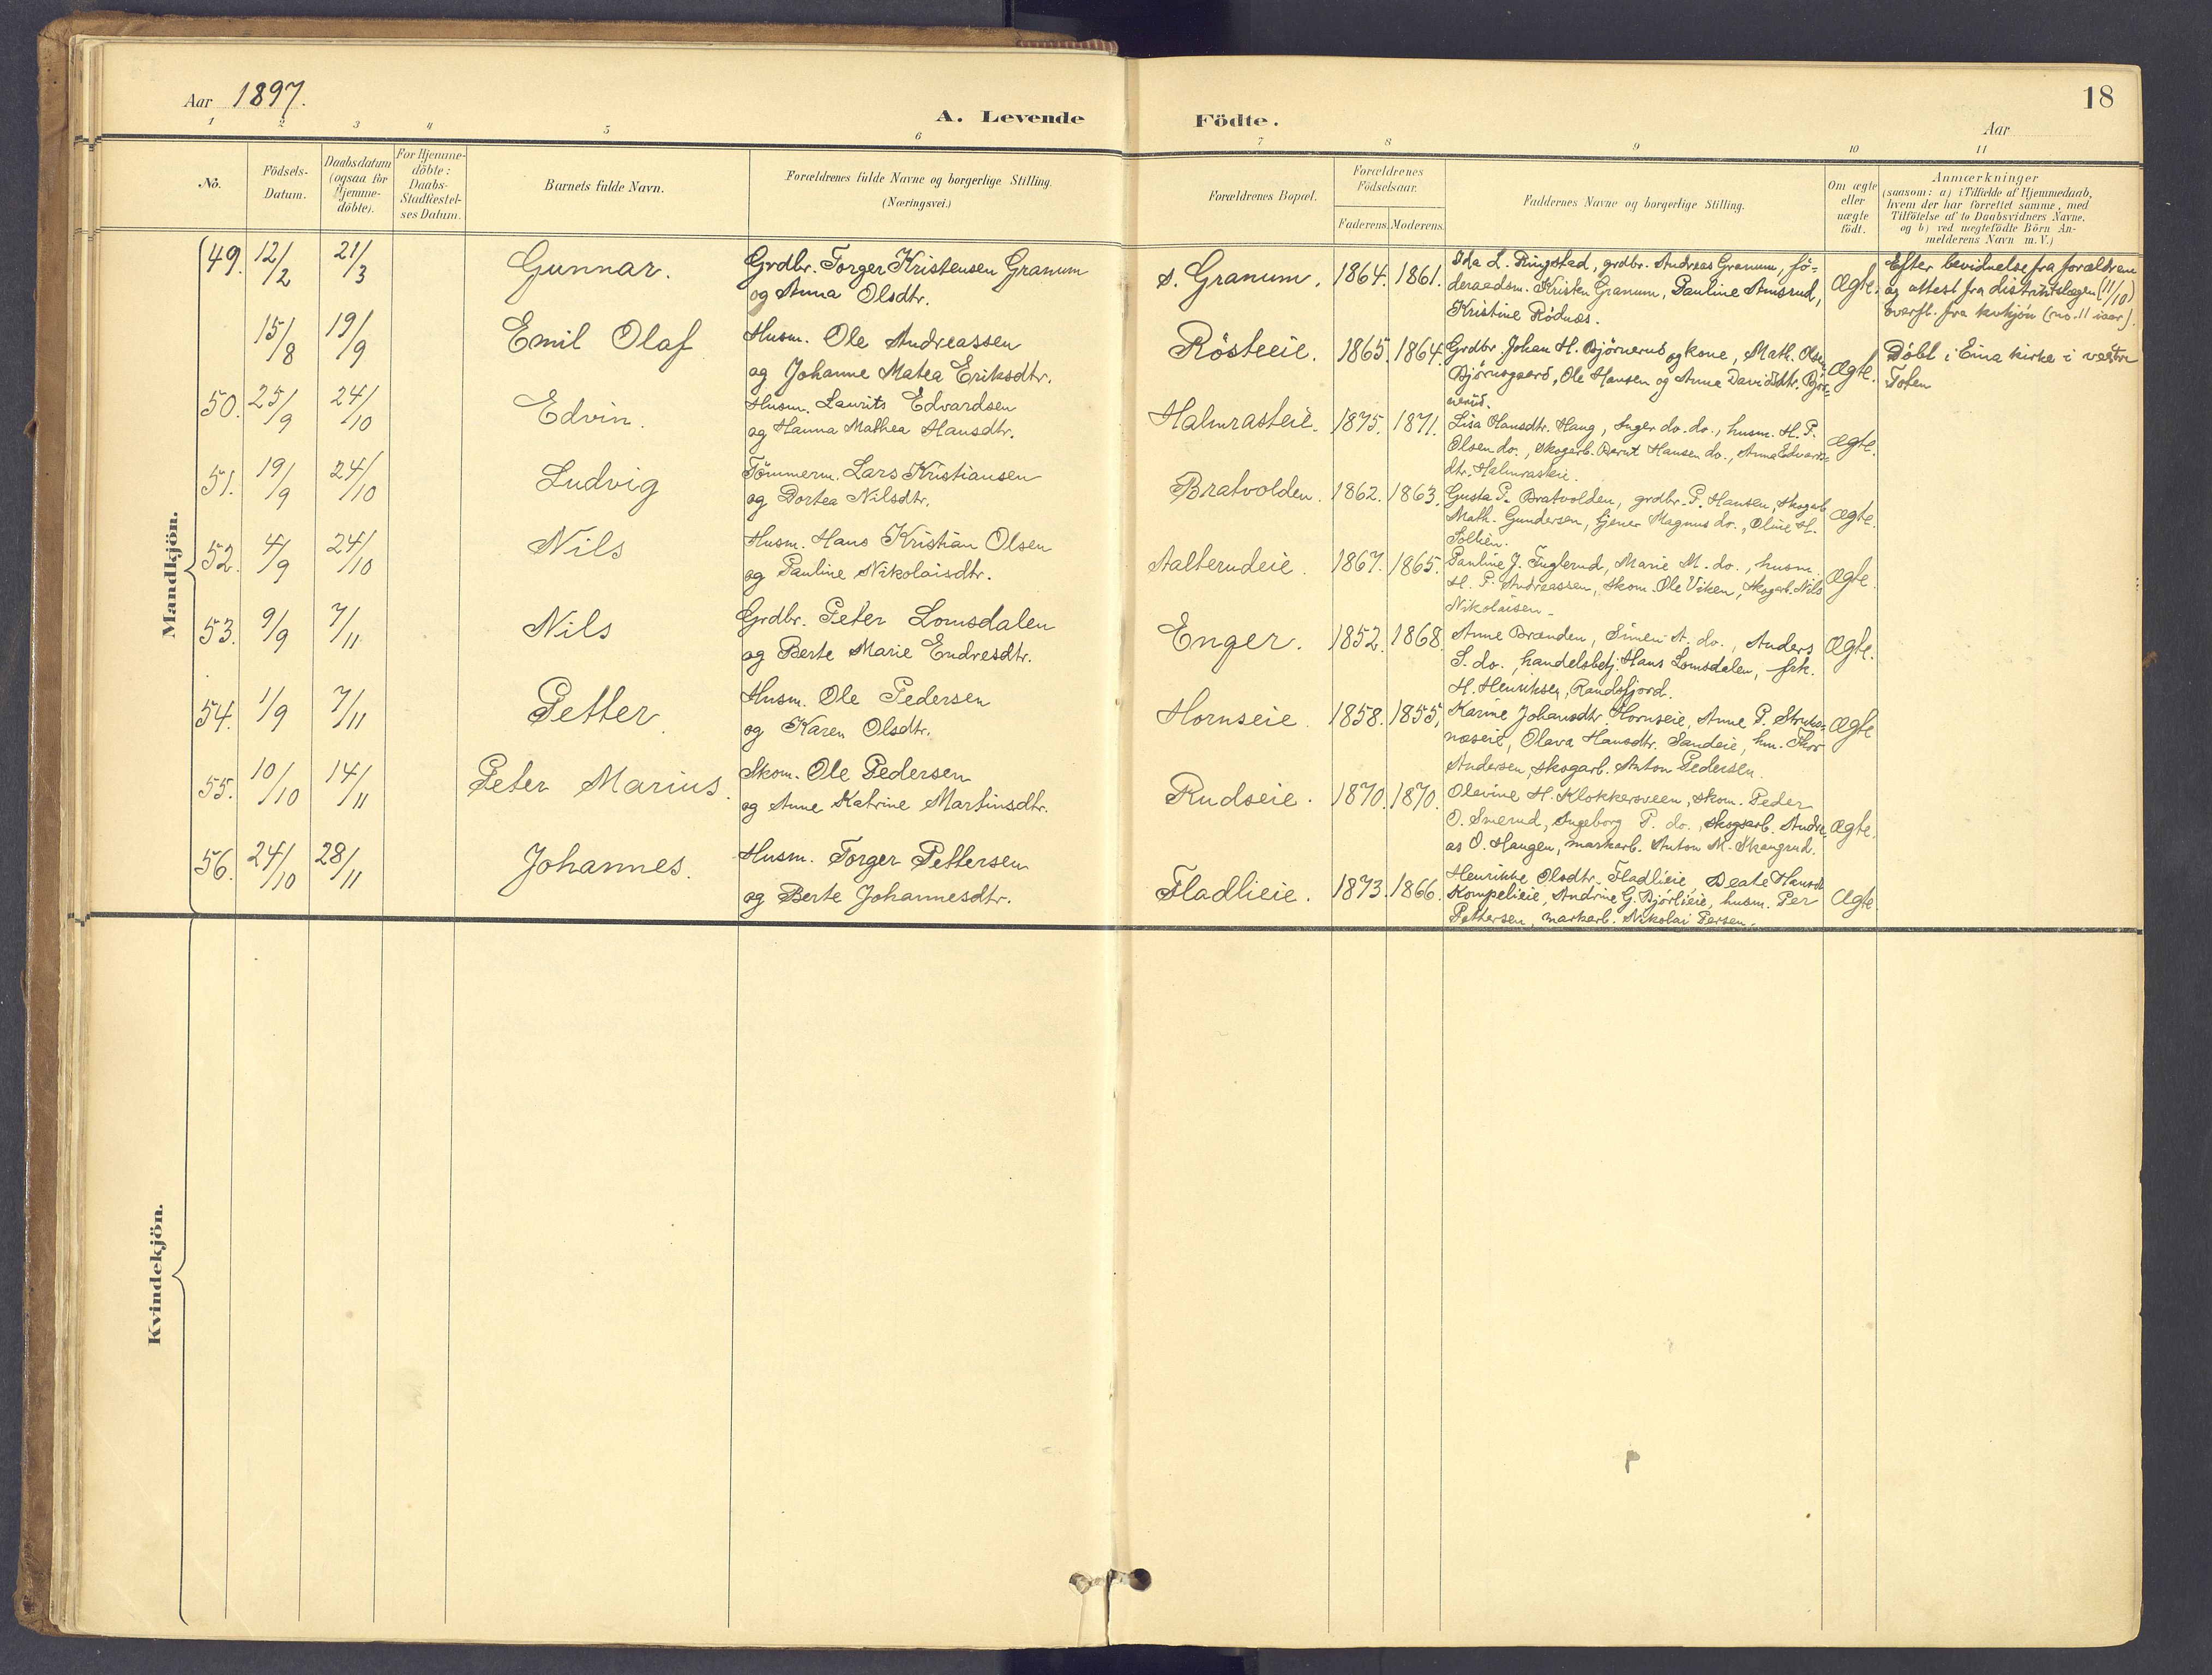 Aar 1897.
A. Levende Födte.
18
Aar
1 2 3 4 5 6 7 8 9 10 11
No.
Födsels-
Datum.
Daabsdatum
(ogsaa for
Hjemme-
döbte).
For Hjemme-
döbte:
Daabs-
Stadfæstel-
ses Datum.
Barnets fulde Navn.
Forældrenes fulde Navne og borgerlige Stilling.
(Næringsvei.)
Forældrenes Bopæl.
Forældrenes
Födselsaar.
Faderens. Moderens.
Faddernes Navne og borgerlige Stilling.
Om ægte
eller
uægte
födt.
Anmærkninger
(saasom: a) i Tilfælde af Hjemmedaab,
hvem der har forrettet samme, med
Tilföielse af to Daabsvidners Navne,
og b) ved uægtefödte Börn An-
melderens Navn m. V.)
Mandkjön.
49. 12/2 21/3 Gunnar.
Grdbr. Torger Kristensen Granum
og Anna Olsdtr.
s. Granum. 1864. 1861.
Ida L. Ringstad, grdbr. Andreas Granum, fö-
deraadsm. Kristen Granum, Pauline Amsrud,
Kristine Rödnæs.
Ægte.
Efter bevidnelse fra forældrene
og attest fra distriktslægen (11/10)
overfl. fra kvkjön (no. 11 iaar).
15/8 19/9 Emil Olaf
Husm. Ole Andreassen
og Johanne Matea Eriksdtr.
Rösteeie. 1865. 1864.
Grdbr Johan H. Björnerud og kone, Math. Olsen
Björnsgaard, Ole Hansen og Anna Davidsdtr. Björ-
nerud.
Ægte.
Döbt i Eina kirke i vestre
Toten
50. 25/9 24/10 Edvin.
Husm. Laurits Edvardsen
og Hanna Mathea Hansdtr.
Halmrasteie. 1875. 1871.
Lisa Hansdtr. Haug, Inger do. do., husm. H. P.
Olsen do., Skogarb. Bernt Hansen do., Anna Edvards-
dtr. Halmrasteie.
Ægte.
51. 19/9 24/10 Ludvig
Tömmerm. Lars Kristiansen
og Dortea Nilsdtr.
Bratvolden. 1862. 1863.
Gusta P. Bratvolden, grdbr. P. Hansen, Skogarb.
Math. Gundersen, tjener Magnus do., Oline H.
Ægte.
52. 4/9 24/10 Nils
Husm. Hans Kristian Olsen
og Pauline Nikolaisdtr.
Aalterudeie. 1867. 1865.
Pauline J. Fuglerud, Marie M. do., husm.
H. P. Andreassen, skom. Ole Viken, Skogarb. Nils
Nikolaisen.
Ægte.
53. 9/9 7/11 Nils
Grdbr. Peter Lomsdalen
og Berte Marie Endresdtr.
Enger. 1852. 1868.
Anne Brænden, Simen A. do., Anders
S. do., handelsbetj. Hans Lomsdalen, frk.
H. Henriksen, Randsfjord.
Ægte.
54. 1/9 7/11 Petter.
Husm. Ole Pedersen
og Karen Olsdtr.
Hornseie. 1858. 1855.
Karine Johansdtr. Hornseie, Anne P. Struks-
næseie, Olava Hansdtr. Sandeie, hm. Thor
Andersen, skogarb. Anton Pedersen.
Ægte
55. 10/10 14/11 Peter Marius.
Skom. Ole Pedersen
og Anne Katrine Martinsdtr.
Rudseie. 1870. 1870.
Olevine H. Klokkersveen, skom. Peder
O. Smerud, Ingeborg P. do., skogsarb. Andre-
as O. Haugen, markarb. Anton M. Skangrud.
Ægte.
56. 24/10 28/11 Johannes.
Husm. Torger Pettersen
og Berte Johannesdtr.
Fladlieie. 1873. 1866.
Henrikke Olsdtr. Fladlieie, Beate Hansdtr
Kompelieie, Andrine G. Björlieie, husm. Per
Pettersen, markarb. Nikolai Persen.
Ægte
Kvindekjön.